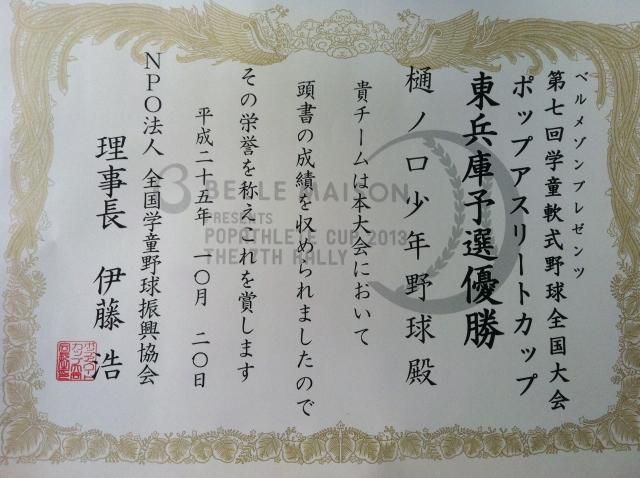 ベルメゾンプレゼンツ
第七回学童軟式野球全国大会
ポップアスリートカップ
東兵庫予選優勝
樋ノ口少年野球殿
貴チームは本大会において
頭書の成績を収められましたので
その栄誉を称えこれを賞します
平成二十五年 一〇月 二〇日
NPO法人 全国学童野球振興協会
理事長 伊藤 浩
BELLE MAISON
PRESENTS
POPATHLETE CUP 2013
THE 7TH RALLY